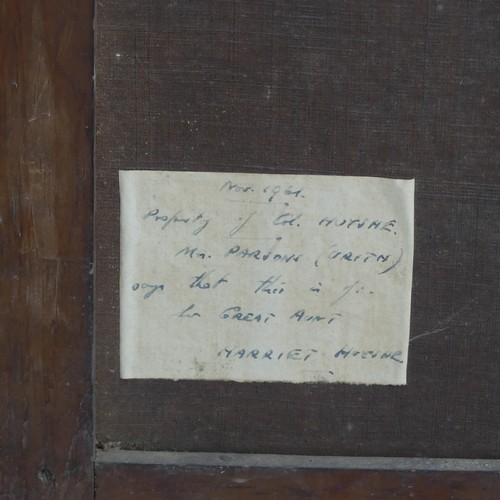 Nov. 1961.
Property of Col. HUYSHE.
Mrs. PARSONS (ORITH)
says that this is of
her GREAT AUNT
HARRIET HUYSHE